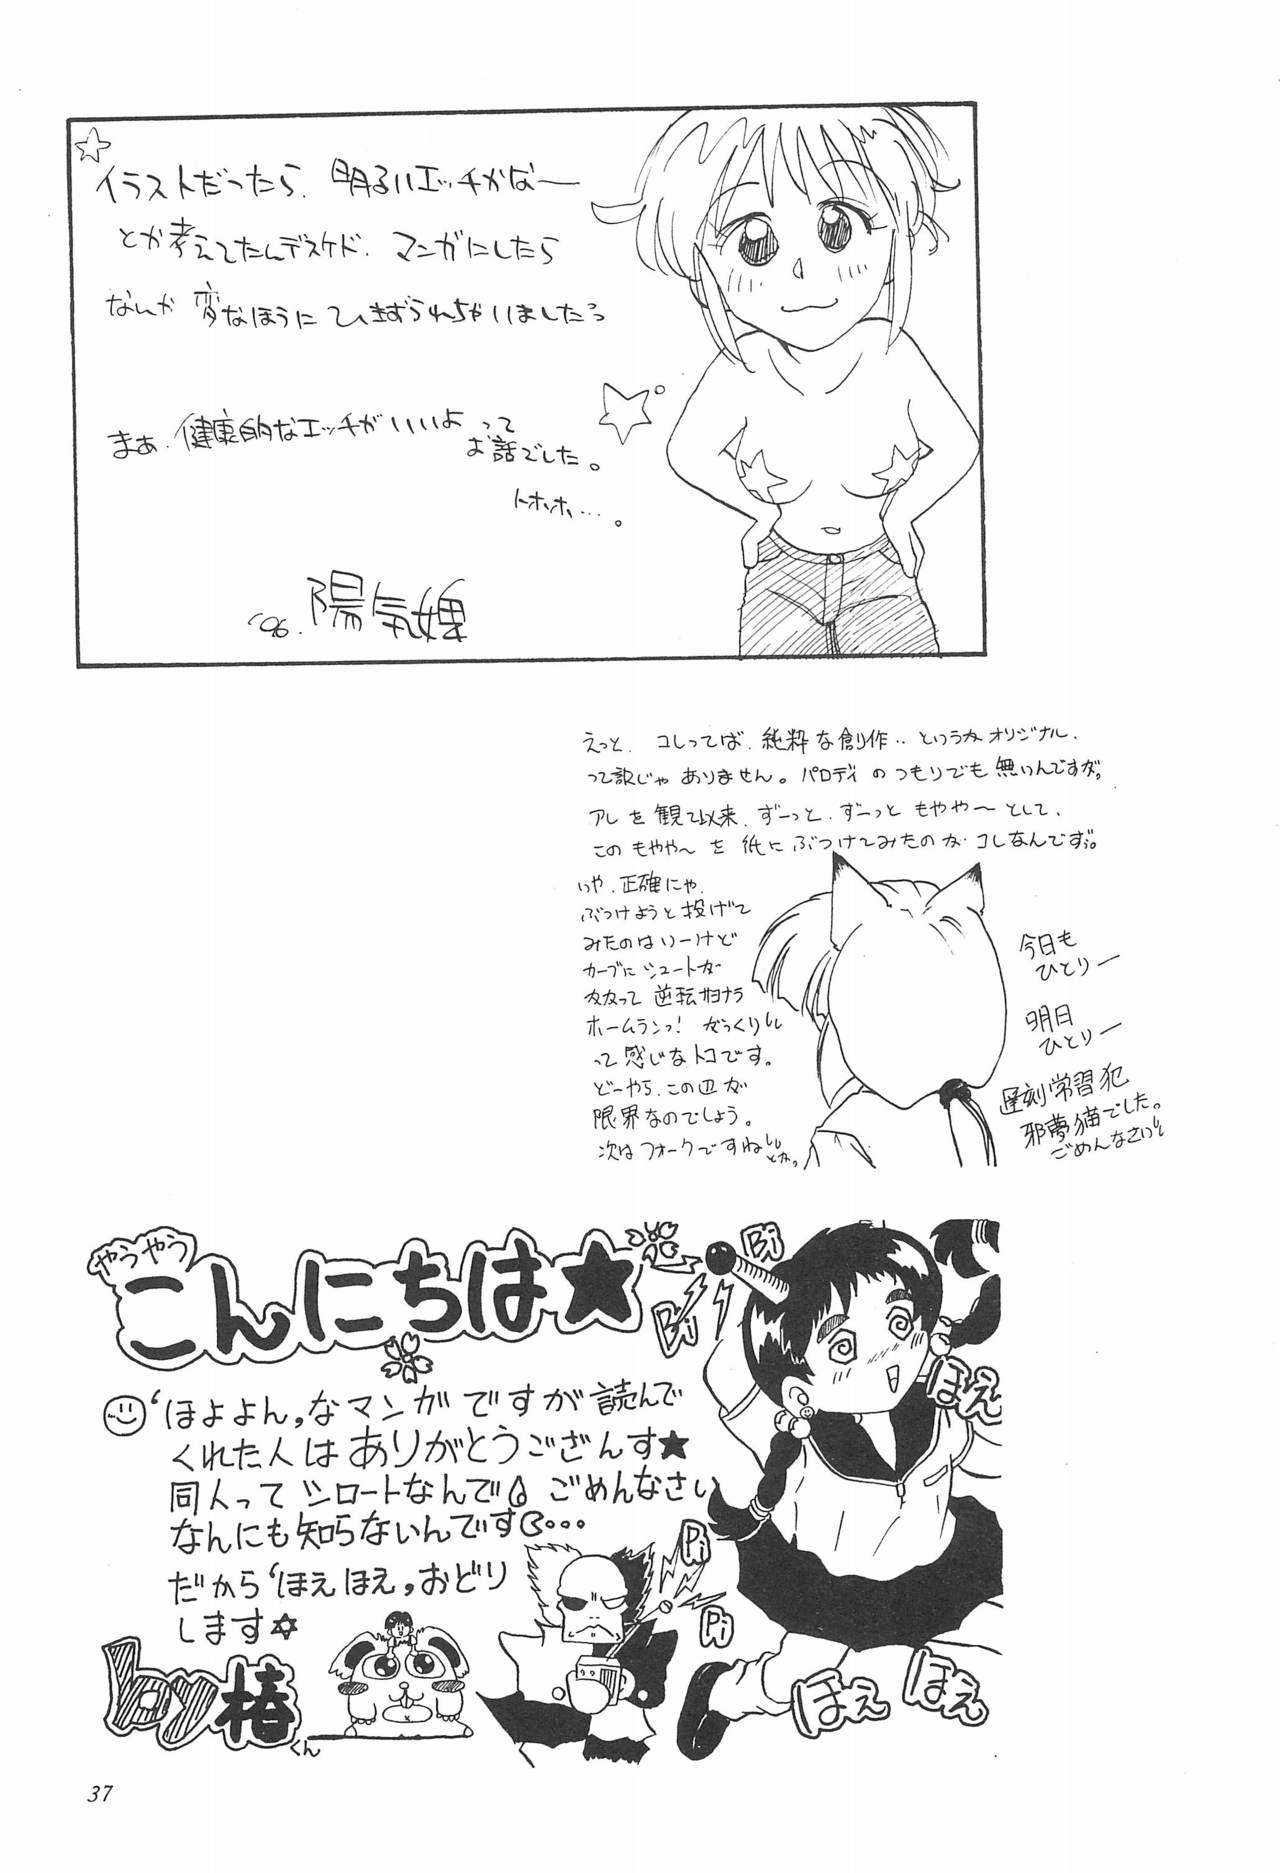 イラストだったら、明るいエッチかなー
とか考えてたんデスケド、マンガにしたら
なんか変なほうにひきずられちゃいましたっ
まぁ、健康的なエッチがいいよって
お話でした。
トホホ…。
'96. 陽気婢
えっと、コレってば、純粋な創作‥というかオリジナル、
って訳じゃありません。パロディのつもりでも無いんですが。
アレを観て以来、ずーっと、ずーっともやや〜として、
このもやや〜を紙にぶつけてみたのがコレなんですが。
いや、正確にゃ、
ぶつけようと投げて
みたのはいーけど
カーブにシュートが
かかって逆転サヨナラ
ホームランっ! がっくりし
って感じなトコです。
どーやら、この辺が
限界なのでしょう。
次はフォークですね とか。
今日も
ひとりー
明日
ひとりー
遅刻常習犯
邪夢猫でした。
ごめんなさい
やうやう
こんにちは★
'ほよよん,なマンガですが読んで
くれた人はありがとうござんす★
同人ってシロートなんで ごめんなさい
なんにも知らないんです…
だから'ほえほえ,おどり
します☆
by 椿
くん
Bi
Bi
Pi
Pi
ほえ
ほえ
ほえ
37